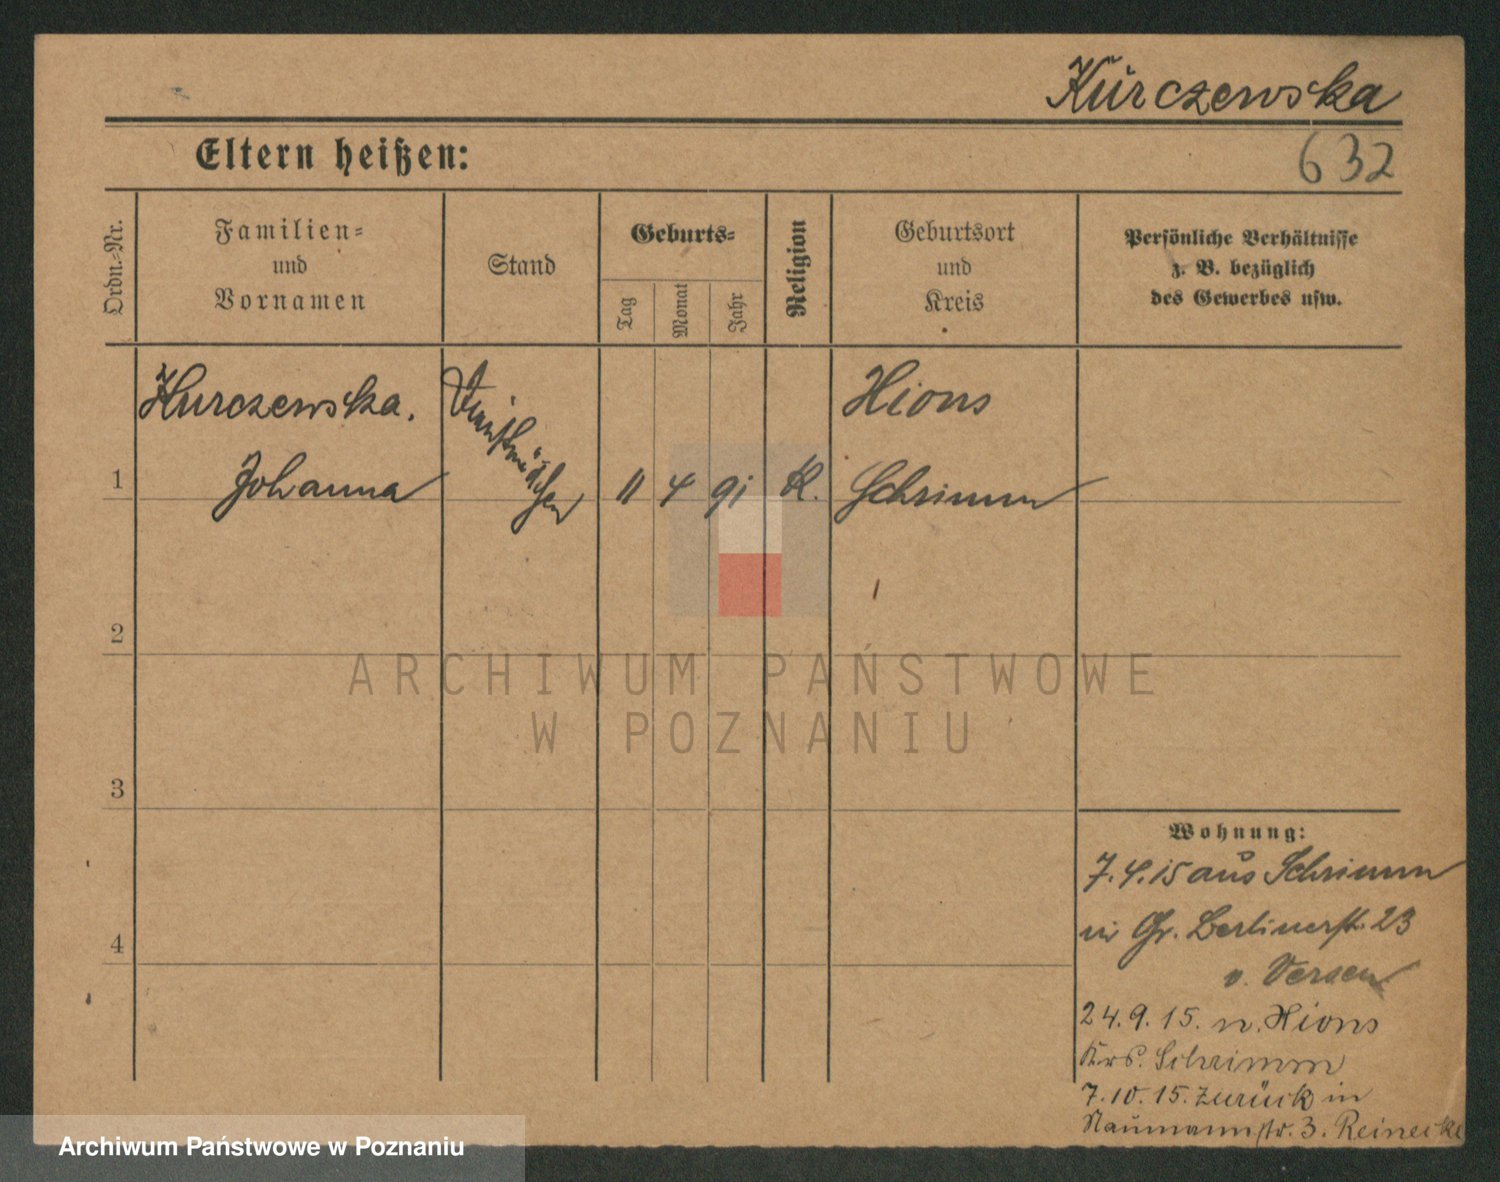 Kurczewska
Eltern heißen:
632
Ordn.-Nr.
Familien-
und
Vornamen
Stand
Geburts-
Tag
Monat
Jahr
Religion
Geburtsort
und
Kreis
Persönliche Verhältnisse
z. B. bezüglich
des Gewerbes usw.
Kurczewska.
Johanna
Dienstmädchen
11 4 91 K.
Xions
Schrimm
1
2
3
4
Wohnung:
7.4.15 aus Schrimm
in Gr. Berlinerstr. 23
v. Versen
24.9.15. n. Xions
Krs. Schrimm
7.10.15. zurück in
Naumannstr. 3. Reinecke
ARCHIWUM PAŃSTWOWE
W POZNANIU
Archiwum Państwowe w Poznaniu